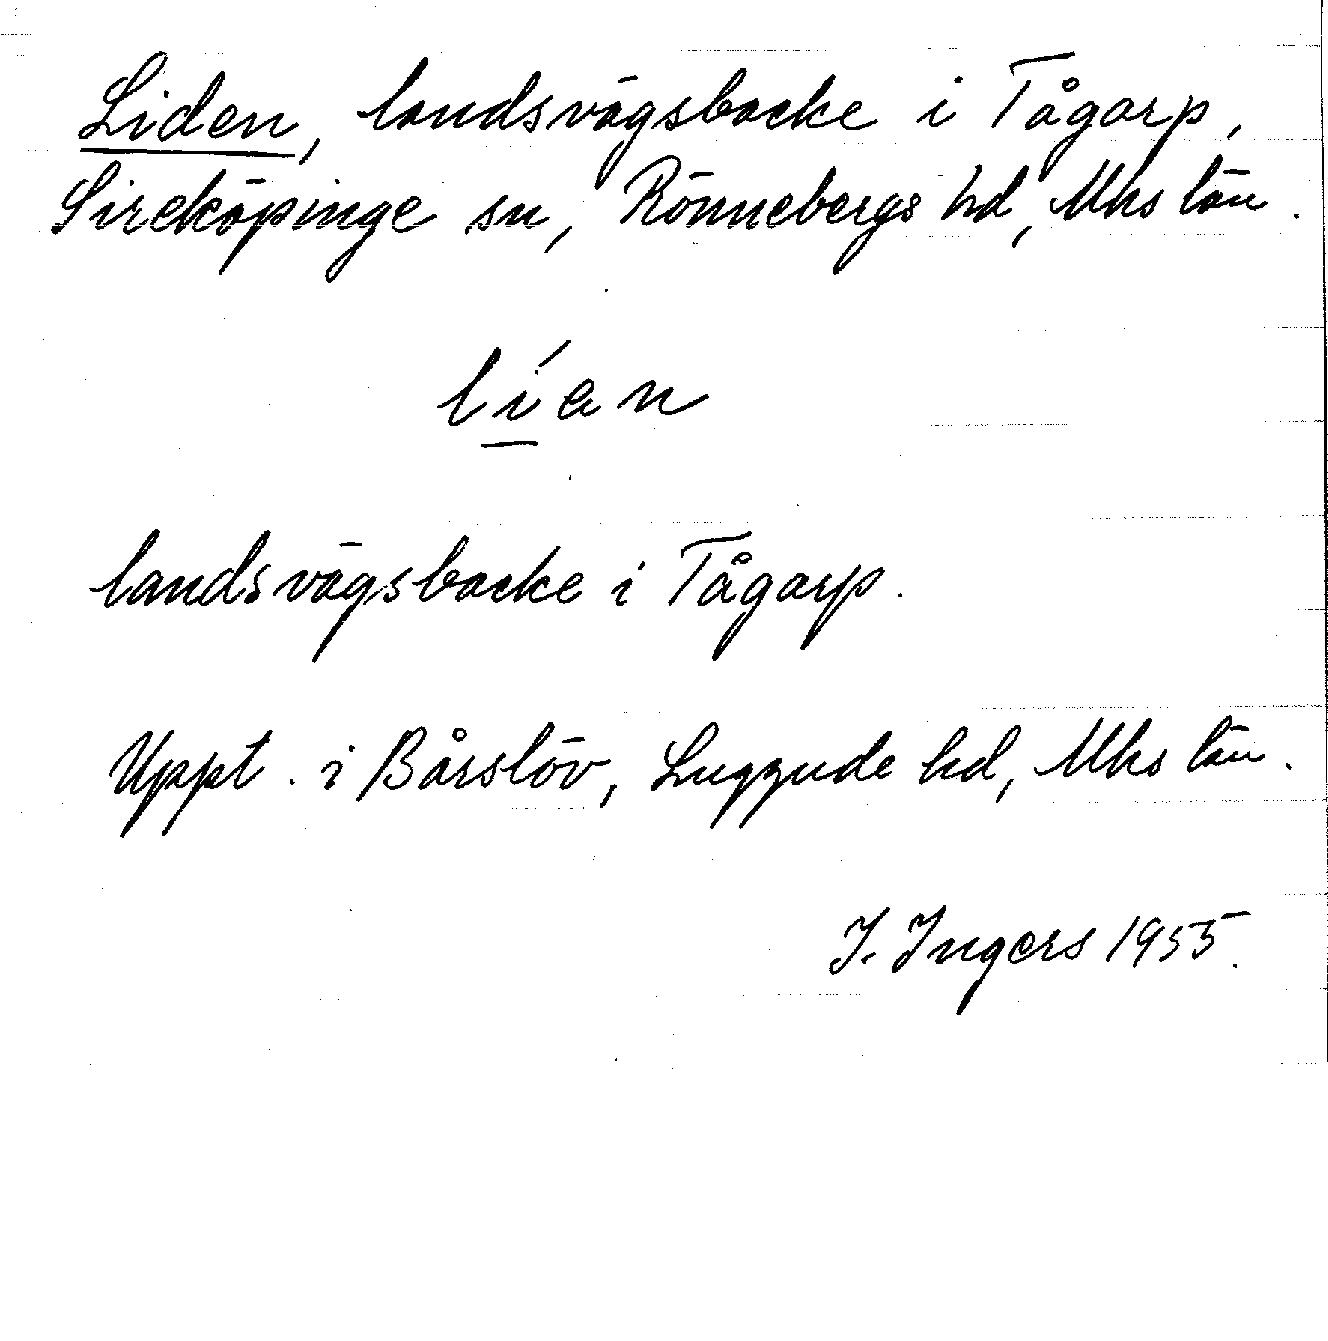 Liden, landsvägsbacke i Tågarp,
Sireköpinge sn, Rönnebergs hd, Mhs län.
lían
landsvägsbacke i Tågarp.
Uppt. i Bårslöv, Luggude hd, Mhs län.
I. Ingers 1955.